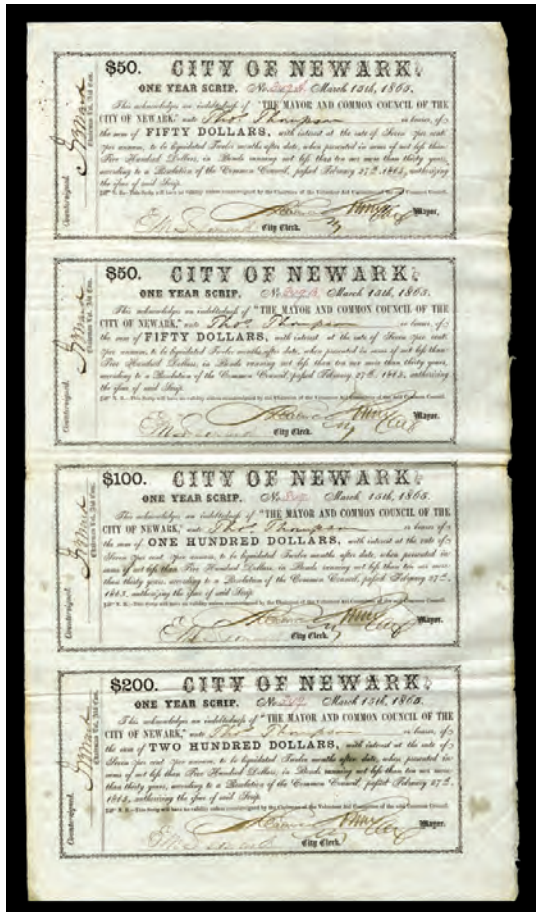 $50. CITY OF NEWARK.
ONE YEAR SCRIP. No. March 15th, 1865.
This acknowledges an indebtedneſs of "THE MAYOR AND COMMON COUNCIL OF THE
CITY OF NEWARK," unto Thos. Thompson or bearer, of
the sum of FIFTY DOLLARS, with interest at the rate of Seven per cent.
per annum, to be liquidated Twelve months after date, when presented in sums of not leſs than
Five Hundred Dollars, in Bonds running not leſs than ten nor more than thirty years,
according to a Resolution of the Common Council, paſsed February 27th, 1865, authorizing
the iſsue of said Scrip.
N. B.—This Scrip will have no validity unless countersigned by the Chairman of the Volunteer Aid Committee of the said Common Council.
Mayor.
City Clerk.
Countersigned,
Chairman Vol. Aid Com.
$50. CITY OF NEWARK.
ONE YEAR SCRIP. No. March 15th, 1865.
This acknowledges an indebtedneſs of "THE MAYOR AND COMMON COUNCIL OF THE
CITY OF NEWARK," unto Thos. Thompson or bearer, of
the sum of FIFTY DOLLARS, with interest at the rate of Seven per cent.
per annum, to be liquidated Twelve months after date, when presented in sums of not leſs than
Five Hundred Dollars, in Bonds running not leſs than ten nor more than thirty years,
according to a Resolution of the Common Council, paſsed February 27th, 1865, authorizing
the iſsue of said Scrip.
N. B.—This Scrip will have no validity unless countersigned by the Chairman of the Volunteer Aid Committee of the said Common Council.
Mayor.
City Clerk.
Countersigned,
Chairman Vol. Aid Com.
$100. CITY OF NEWARK.
ONE YEAR SCRIP. No. March 15th, 1865.
This acknowledges an indebtedneſs of "THE MAYOR AND COMMON COUNCIL OF THE
CITY OF NEWARK," unto Thos. Thompson or bearer, of
the sum of ONE HUNDRED DOLLARS, with interest at the rate of
Seven per cent. per annum, to be liquidated Twelve months after date, when presented in
sums of not leſs than Five Hundred Dollars, in Bonds running not leſs than ten nor more
than thirty years, according to a Resolution of the Common Council, paſsed February 27th,
1865, authorizing the iſsue of said Scrip.
N. B.—This Scrip will have no validity unless countersigned by the Chairman of the Volunteer Aid Committee of the said Common Council.
Mayor.
City Clerk.
Countersigned,
Chairman Vol. Aid Com.
$200. CITY OF NEWARK.
ONE YEAR SCRIP. No. March 15th, 1865.
This acknowledges an indebtedneſs of "THE MAYOR AND COMMON COUNCIL OF THE
CITY OF NEWARK," unto Thos. Thompson or bearer, of
the sum of TWO HUNDRED DOLLARS, with interest at the rate of
Seven per cent. per annum, to be liquidated Twelve months after date, when presented in
sums of not leſs than Five Hundred Dollars, in Bonds running not leſs than ten nor more
than thirty years, according to a Resolution of the Common Council, paſsed February 27th,
1865, authorizing the iſsue of said Scrip.
N. B.—This Scrip will have no validity unless countersigned by the Chairman of the Volunteer Aid Committee of the said Common Council.
Mayor.
City Clerk.
Countersigned,
Chairman Vol. Aid Com.